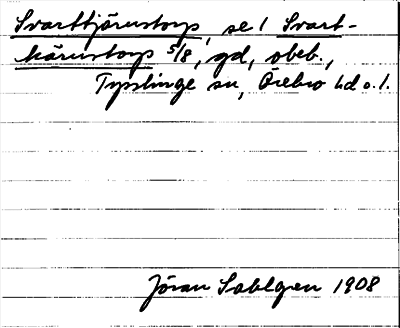 Svarttjärnstorp, se / Svart-
kärnstorp 5/8, gd, obeb.,
Tysslinge sn, Örebro hd o. l.
Jöran Sahlgren 1908